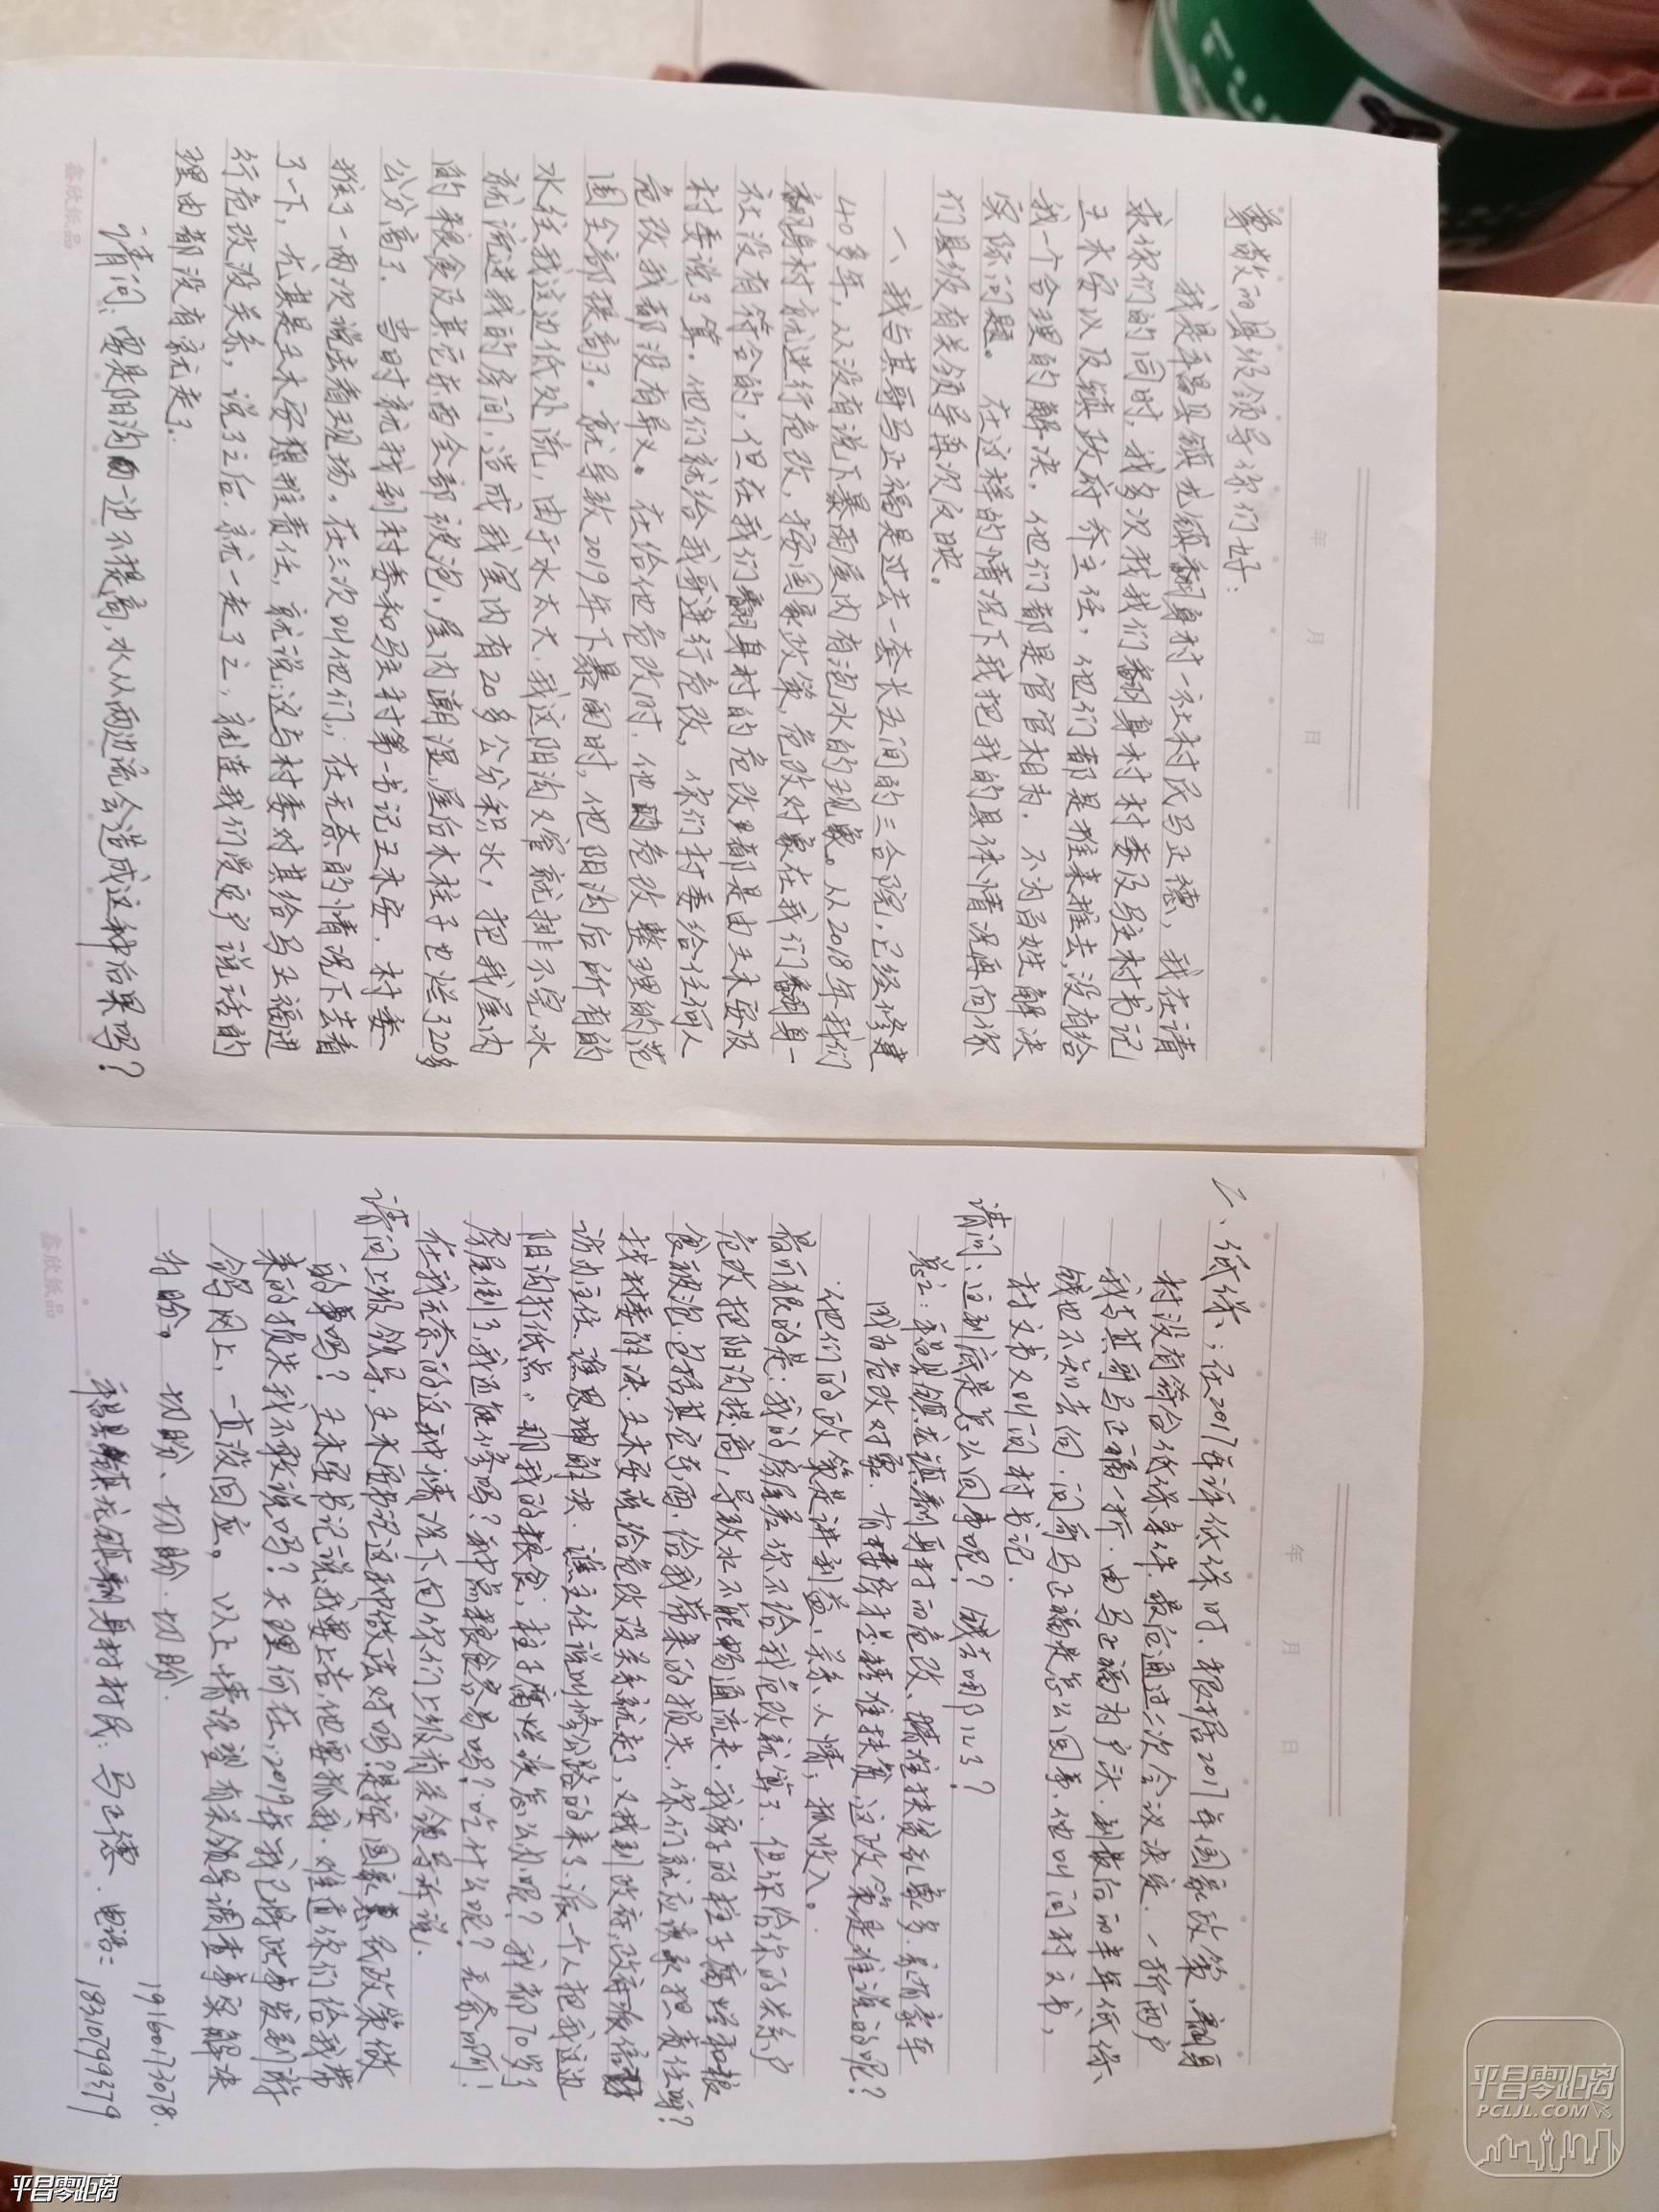 年 月 日
尊敬的县级领导你们好：
我是平昌县镇龙镇翻身村一社村民马正德，我在请
求你们的同时，我多次找我们翻身村村委及驻村书记
王木安以及镇政府乔主任，他们都是推来推去，没有给
我一个合理的解决，他们都是官官相为，不为百姓解决
实际问题。在这样的情况下我把我的具体情况再向你
们县级有关领导再次反映。
一、我与其哥马正福是过去一套长五间的三合院，已经修建
40多年，从没有说下暴雨屋内有泡水的现象。从2018年我们
翻身村就进行危改，按国家政策，危改对象在我们翻身一
社没有符合的，但在我们翻身村的危改都是由王木安及
村委说了算。他们就给我哥进行危改，你们村委给任何人
危改我都没有异义。在给他危改时，他的危改整理的范
围全部提高了。就导致2019年下暴雨时，他阳沟后所有的
水往我这边低处流，由于水太大，我这阳沟又窄就排不完，水
就流进我的房间，造成我室内有20多公分积水，把我屋内
的粮食及其它东西全部被泡，屋内潮湿，屋后木柱子也烂了20多
公分高了，当时就找到村委和驻村第一书记王木安，村委
推了一两次说去看现场。在三次叫他们，在无奈的情况下去看
了一下，尤其是王木安想推责任，就说：这与村委对其给马正福进
行危改没关系，说了之后，就一走了之，就连我们受灾户说话的
理由都没有就走了。
请问：要是阳沟的一边不提高，水从两边流会造成这种后果吗？
鑫欣纸品
年 月 日
二、低保：在2017年评低保时，根据2017年国家政策，翻身
村没有符合低保条件，最后通过二次会议决定，一折两户
我与其哥马正福一折，由马正福为户头，到最后的半年低保
钱也不知去向，问哥马正福是怎么回事，他叫问村文书，
村文书又叫问村书记。
请问：这到底是怎么回事呢？钱去哪儿了？
总之：平昌县镇龙镇翻身村的危改、精准扶贫乱象多，家有豪车
成为危改对象，有楼房才是精准扶贫，这政策是谁说的呢？
他们的政策是讲利益、关系、人情，抓收入。
最可狠的是：我的房屋差你不给我危改就算了，但你给你的关系户
危改把阳沟提高，导致水不能畅通流走，我房子的柱子腐烂和粮
食被泡，包括其它东西，给我带来的损失，你们就应该承担责任吗？
找村委解决，王木安说给危改没关系就走了，又找到政府，政府派信
访办主任谯思坤解决，谯主任说叫修公路的来了，派一个人把我这边
阳沟打低点，那我的粮食，柱子腐烂该怎么办呢？我都70岁了
房屋倒了，我还能修吗？种点粮食容易吗？吃什么呢？无奈啊！
在我无奈的这种情况下向你们上级有关领导诉说。
请问上级领导，王木安书记这种做法对吗？是按国家惠民政策做
的事吗？王木安书记说我要上告，他要抓我，难道你们给我带
来的损失我不敢说吗？天理何在，2019年我已将此事发到前
鸽网上，一直没回应。以上情况望有关领导调查事实解决
为盼。 切盼、切盼、切盼.
19160173078.
平昌县镇龙镇翻身村村民：马正德. 电话：18310799379
鑫欣纸品
平昌零距离
PCLJL.COM
平昌零距离